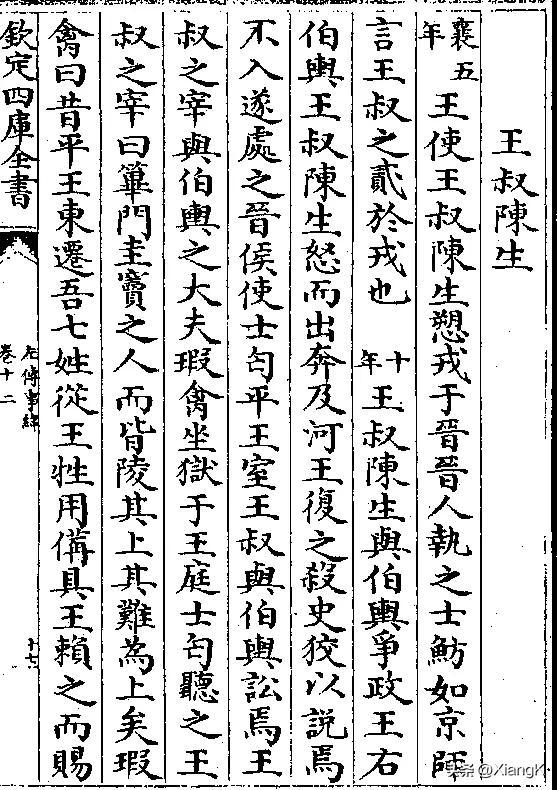 王叔陳生
襄五年王使王叔陳生愬戎于晉晉人執之士魴如京師
言王叔之貳於戎也十年王叔陳生與伯輿爭政王右
伯輿王叔陳生怒而出奔及河王復之殺史狡以說焉
不入遂處之晉侯使士匄平王室王叔與伯輿訟焉王
叔之宰與伯輿之大夫瑕禽坐獄于王庭士匄聽之王
叔之宰曰篳門圭竇之人而皆陵其上其難為上矣瑕
禽曰昔平王東遷吾七姓從王牲用備具王賴之而賜
欽定四庫全書
左傳事緯
卷十二
十七
头条 @XiangK